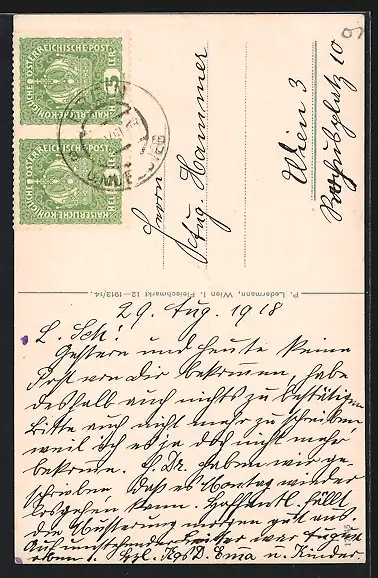 KAISERLICHE-KÖNIGLICHE ÖSTERREICHISCHE-POST
5 HELLER
KAISERLICHE-KÖNIGLICHE ÖSTERREICHISCHE-POST
Herrn
Aug. Hammer
Wien 3
10
P. Ledermann, Wien I. Fleischmarkt 12 — 1913/14.
29. Aug. 1918
L. Sch!
Gestern und heute keine
Post von dir bekommen, habe
deshalb auch nichts zu bestätigen
Bitte auch nicht mehr zu schreiben
weil ich es ja doch nicht mehr
bekomme. haben wir ge-
schrieben daß es Montag wieder
losgehen kann. Hoffentl. fällt
die Musterung morgen gut aus
Auf umstehender August
oben Emma u. Kinder